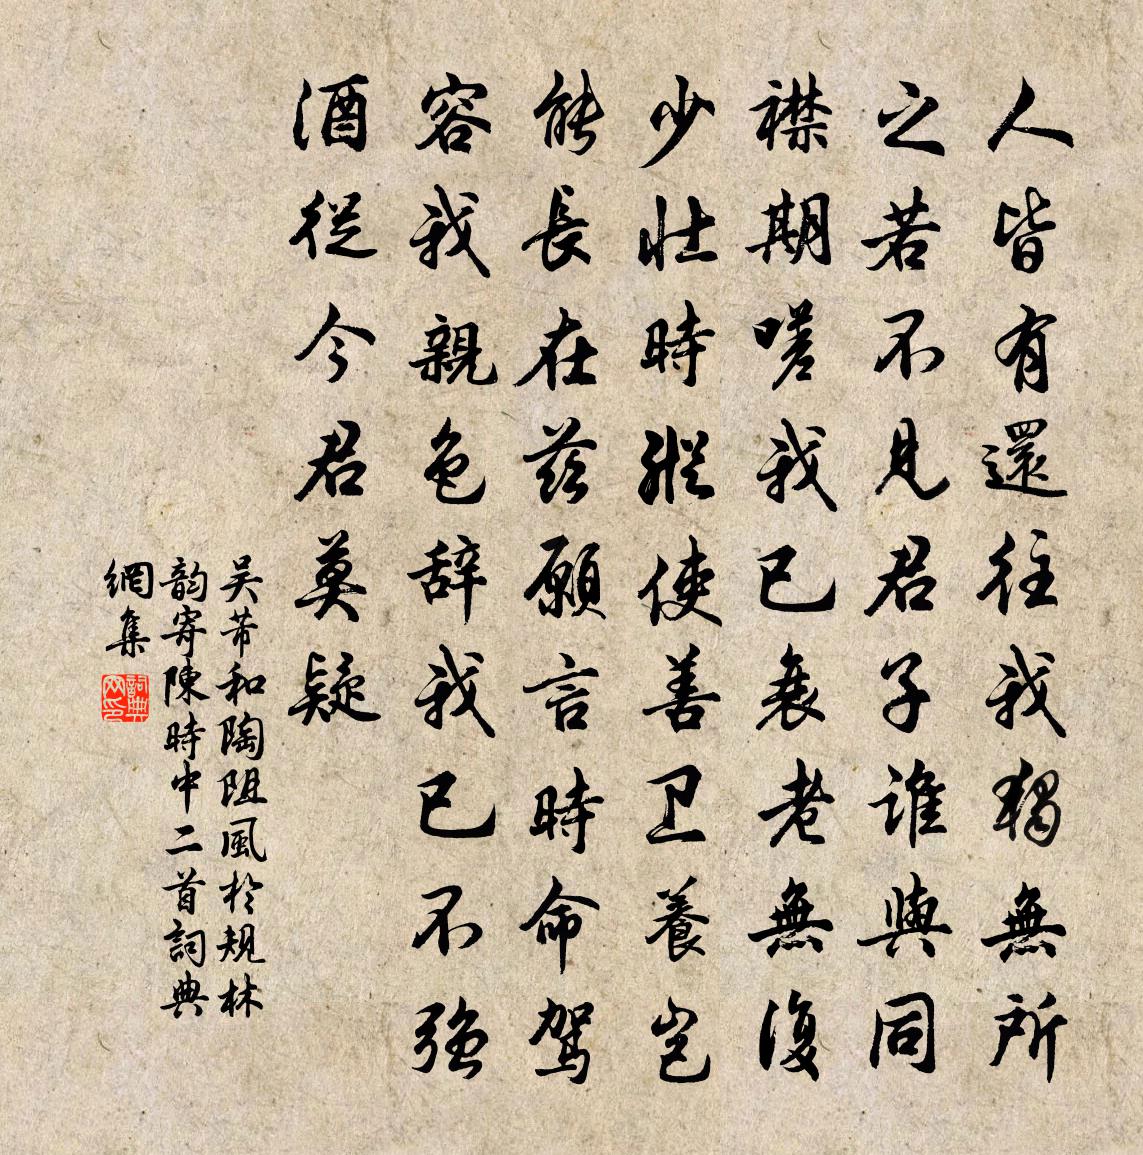 人皆有還往我獨無所
之若不見君子誰與同
襟期嗟我已衰老無復
少壯時縱使善卫養豈
能長在茲願言時命駕
容我親色辞我已不强
酒從今君莫疑
吴芾和陶阻風於規林
韵寄陳時中二首詞典
網集
詞典网印